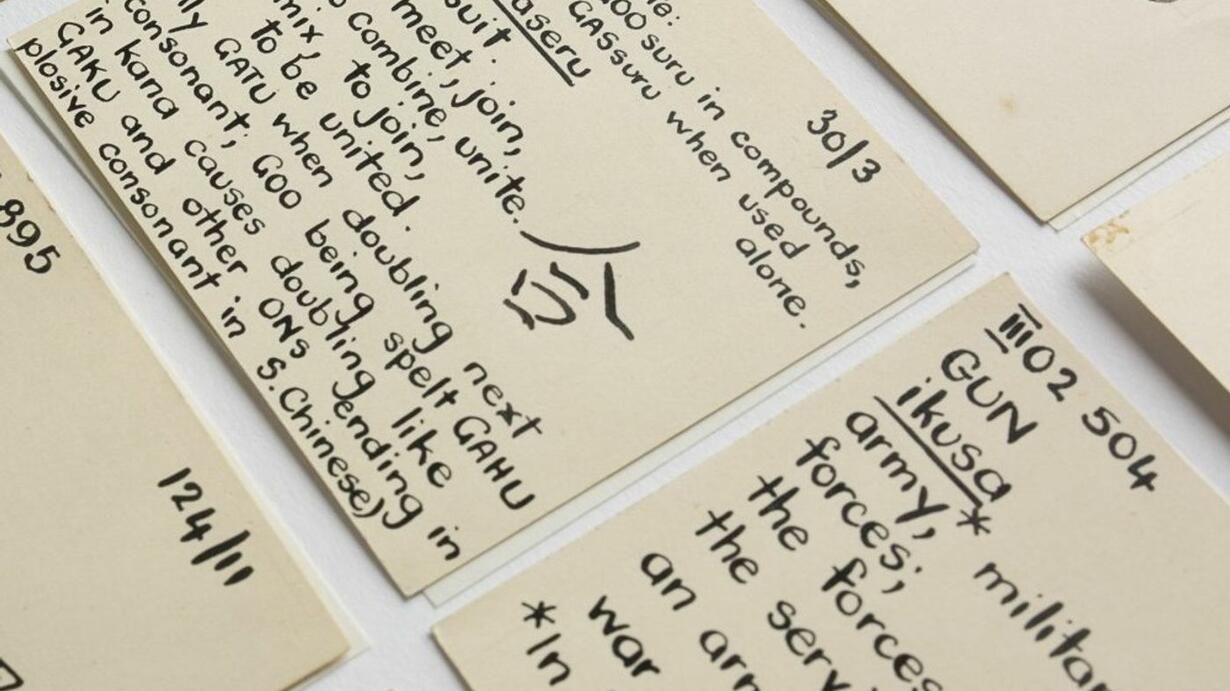 30/3
GOO suru in compounds,
GASSuru when used
alone.
aseru
suit.
meet, join,
combine, unite.
mix, to join,
to be united.
GATU when doubling next
consonant; GOO being spelt GAHU
in kana causes doubling like
GAKU and other ONs (ending in
plosive consonant in S.Chinese)
合
895
124/11
III02 504
GUN
ikusa
army,* militar
forces;
the forces
the serv
an arm
war
*In